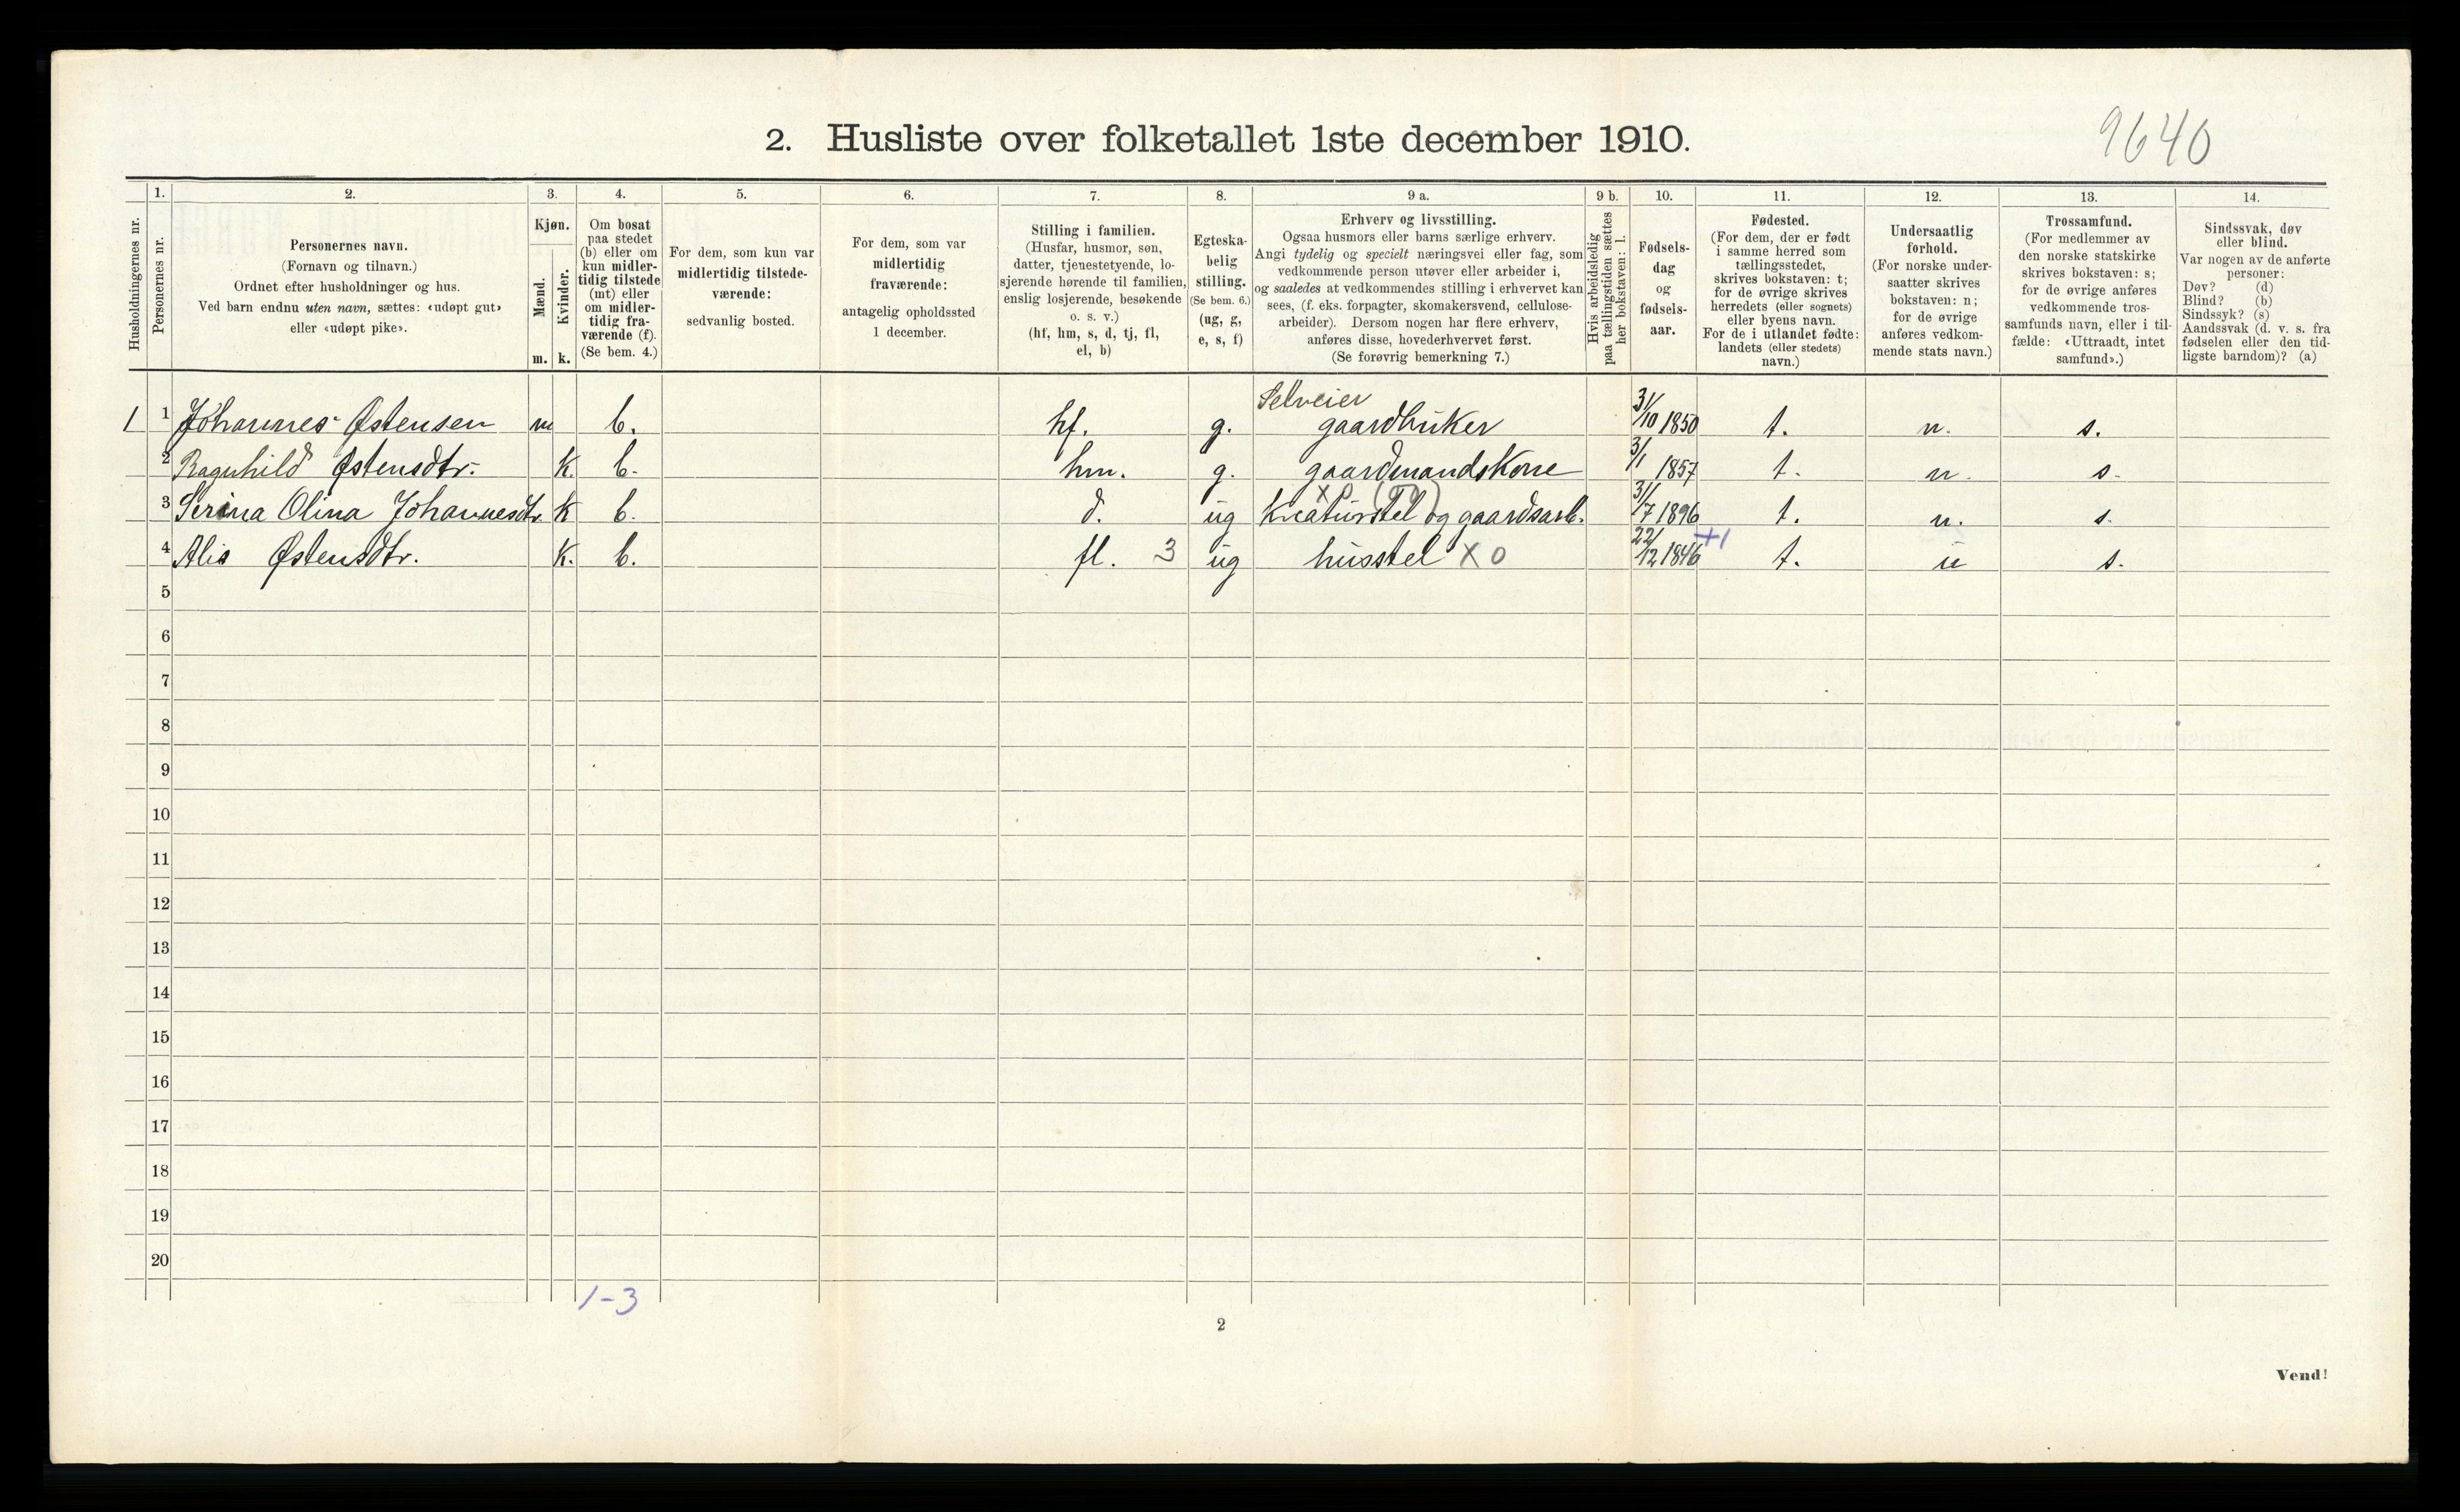 9640
2. Husliste over folketallet 1ste december 1910.
Husholdningernes nr.
1.
Personernes nr.
2.
Personernes navn.
(Fornavn og tilnavn.)
Ordnet efter husholdninger og hus.
Ved barn endnu uten navn, sættes: «udøpt gut»
eller «udøpt pike».
3.
Kjøn.
Mænd.
Kvinder.
m. k.
4.
Om bosat
paa stedet
(b) eller om
kun midler-
tidig tilstede
(mt) eller
om midler-
tidig fra-
værende (f).
(Se bem. 4.)
5.
For dem, som kun var
midlertidig tilstede-
værende:
sedvanlig bosted.
6.
For dem, som var
midlertidig
fraværende:
antagelig opholdssted
1 december.
7.
Stilling i familien.
(Husfar, husmor, søn,
datter, tjenestetyende, lo-
sjerende hørende til familien,
enslig losjerende, besøkende
o. s. v.)
(hf, hm, s, d, tj, fl,
el, b)
8.
Egteska-
belig
stilling.
(Se bem. 6.)
(ug, g,
e, s, f)
9 a.
Erhverv og livsstilling.
Ogsaa husmors eller barns særlige erhverv.
Angi tydelig og specielt næringsvei eller fag, som
vedkommende person utøver eller arbeider i,
og saaledes at vedkommendes stilling i erhvervet kan
sees, (f. eks. forpagter, skomakersvend, cellulose-
arbeider). Dersom nogen har flere erhverv,
anføres disse, hovederhvervet først.
(Se forøvrig bemerkning 7.)
9 b.
Hvis arbeidsledig
paa tællingstiden sættes
her bokstaven: l.
10.
Fødsels-
dag
og
fødsels-
aar.
11.
Fødested.
(For dem, der er født
i samme herred som
tællingsstedet,
skrives bokstaven: t;
for de øvrige skrives
herredets (eller sognets)
eller byens navn.
For de i utlandet fødte:
landets (eller stedets)
navn.)
12.
Undersaatlig
forhold.
(For norske under-
saatter skrives
bokstaven: n;
for de øvrige
anføres vedkom-
mende stats navn.)
13.
Trossamfund.
(For medlemmer av
den norske statskirke
skrives bokstaven: s;
for de øvrige anføres
vedkommende tros-
samfunds navn, eller i til-
fælde: «Uttraadt, intet
samfund».)
14.
Sindssvak, døv
eller blind.
Var nogen av de anførte
personer:
Døv? (d)
Blind? (b)
Sindssyk? (s)
Aandssvak (d. v. s. fra
fødselen eller den tid-
ligste barndom)? (a)
Selveier
1 1 Johannes Østensen m b. hf. g. gaardbruker 31/10 1850 t. n. s.
2 Ragnhild Østensdtr. k. b. hm. g. gaardmandskone 3/1 1857 t. n. s.
3 Serina Olina Johannesdtr. k b. d. ug Kreaturstel og gaardsarb. 31/7 1896 t. n. s.
4 Alis Østensdtr. k. b. fl. 3 ug husstel X O 22/12 1846 +1 t. n s.
5
6
7
8
9
10
11
12
13
14
15
16
17
18
19
20
1-3
2
Vend!